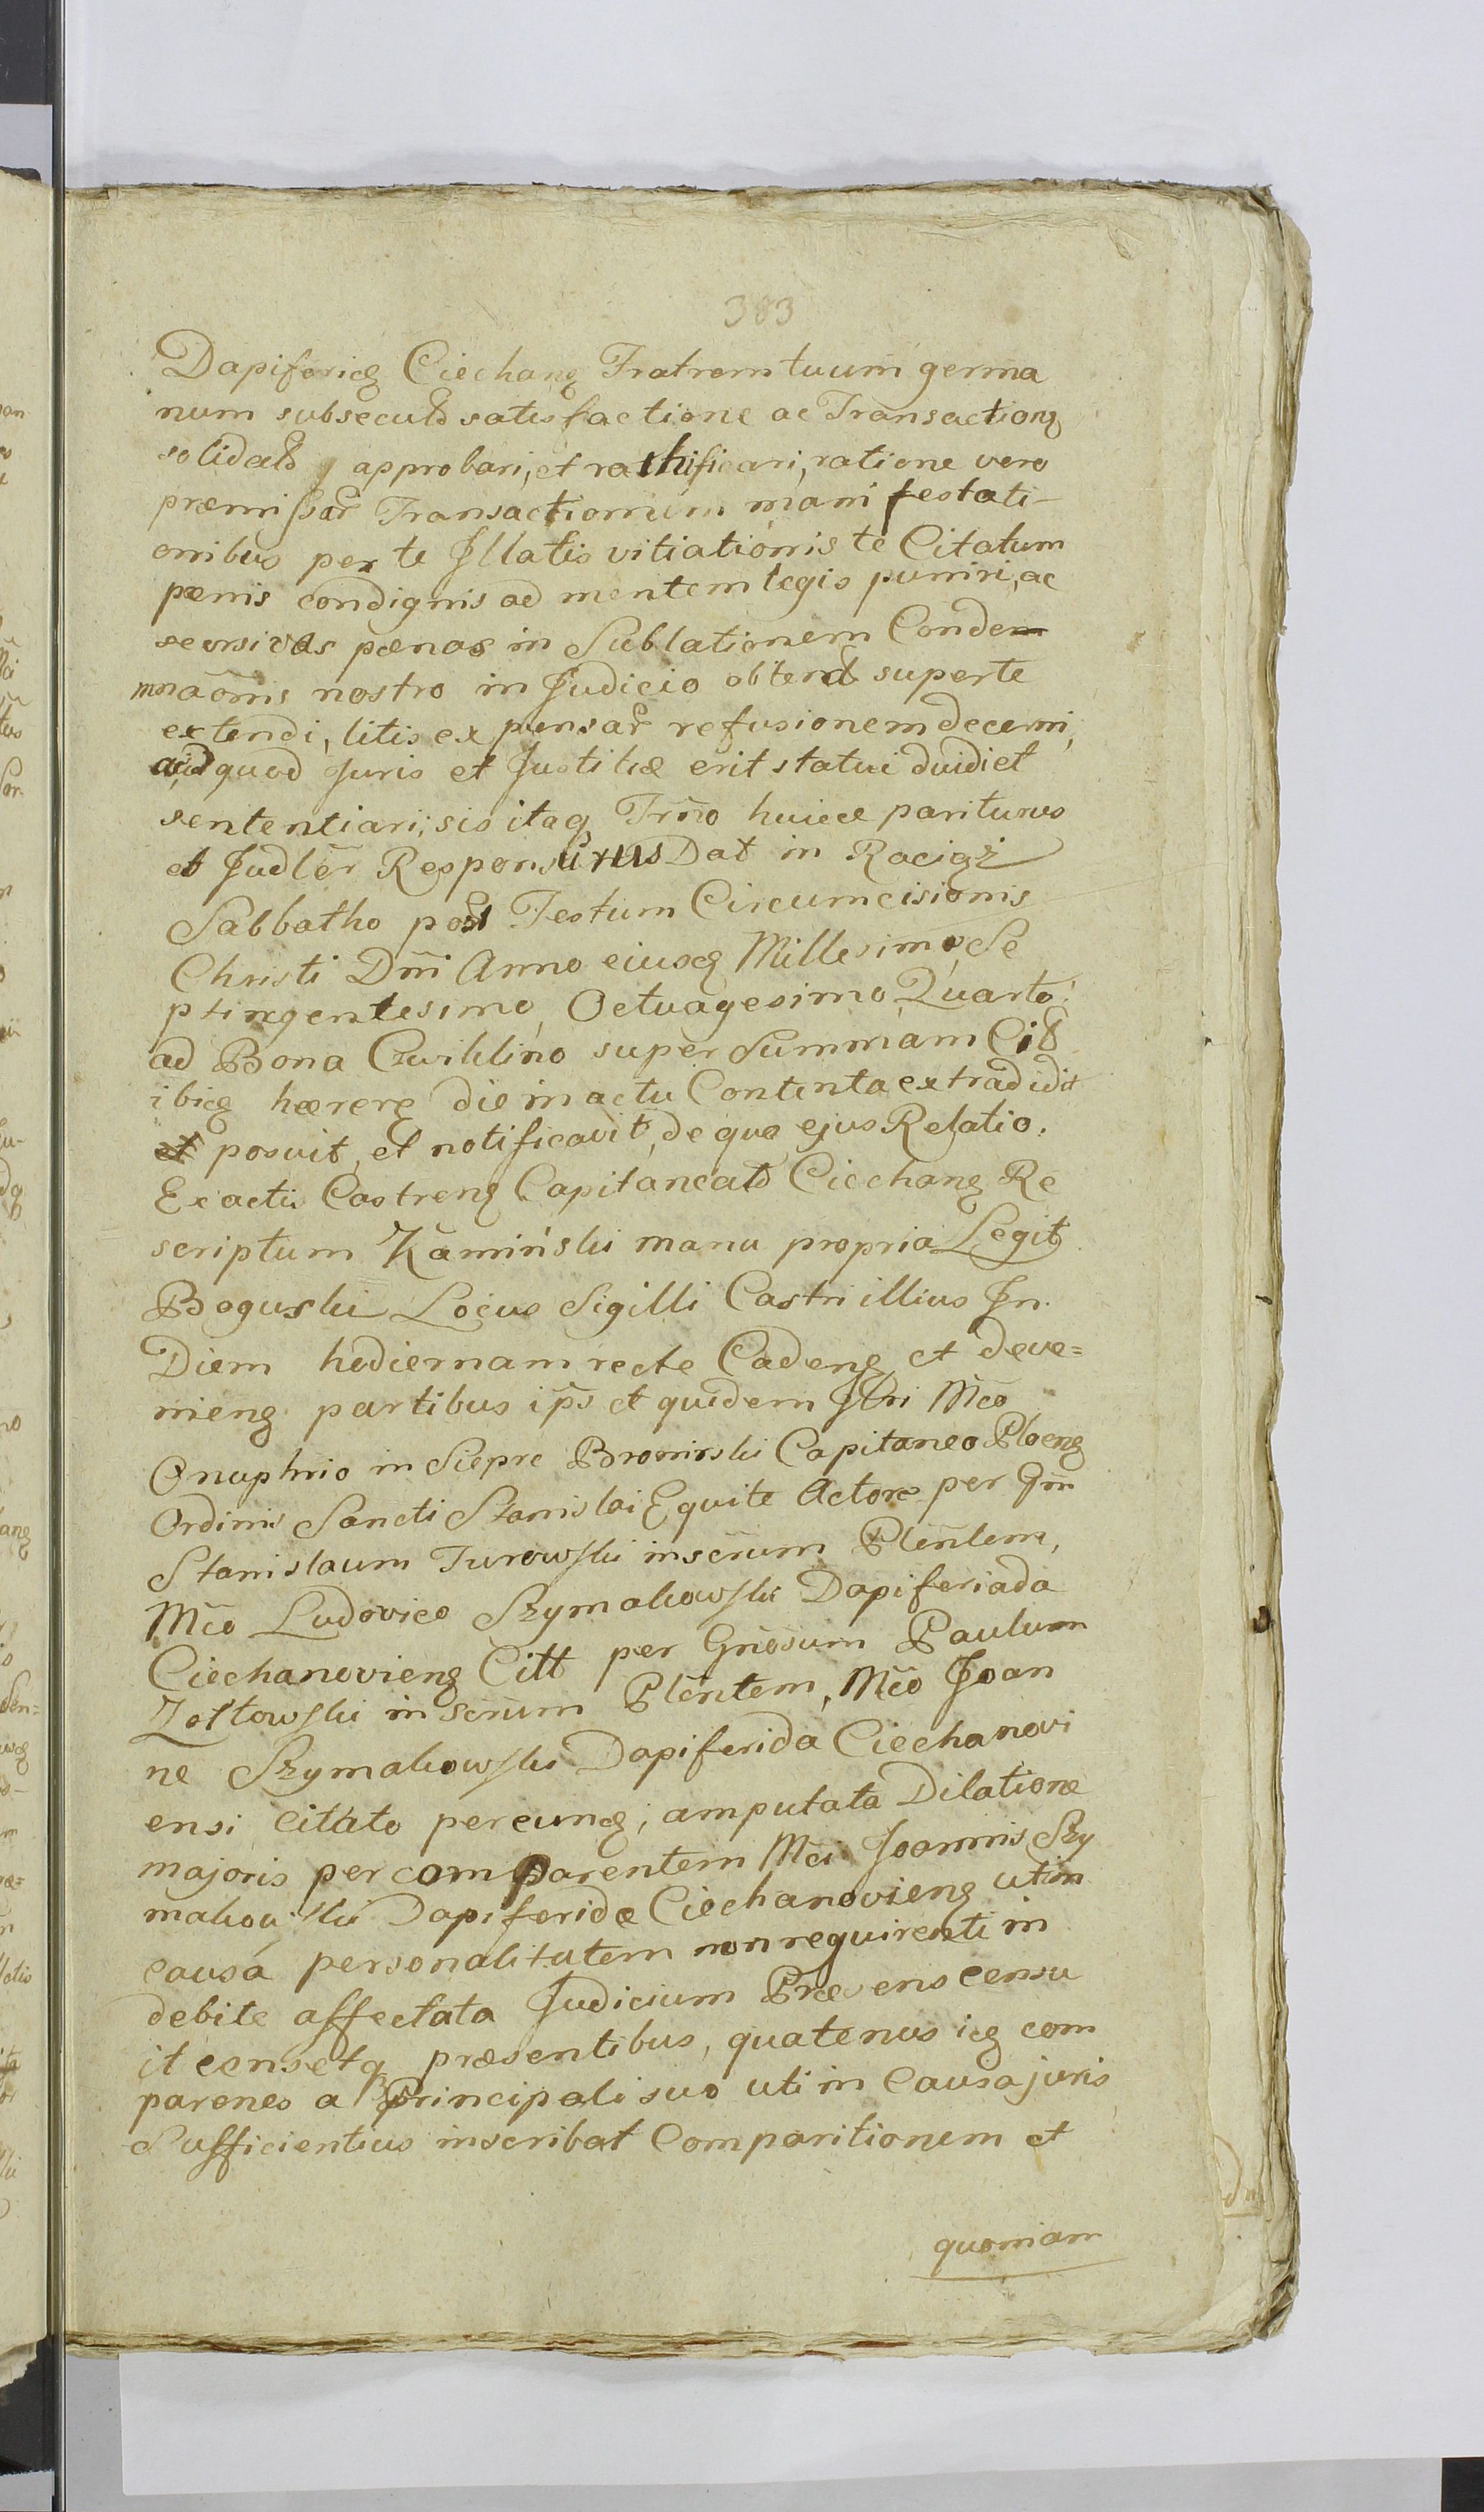 383
Dapifericę Ciechanę Fratrem tuum germa
num subsecuto satisfactione ac Transactionę
solidato approbari, et rathificari, ratione vero
præmissar̃ Transactionum manifestati-
onibus per te Illatis vitiationis te Citatum
pænis condignis ad mentem legis puniri, ac
seorsivas pænas in Sublationem Condem
mnaõnis nostro in Judicio obtent superte
extendi, litis expensar̃ refusionem decerni,
aid quod Juris et Justitiæ erit statui duidiet
sententiari; sis itaq Trño huicce pariturus
et Judlẽr Responsurus Dat in Raciąż
Sabbatho post Festum Circumcisionis
Christi Dñi Anno eiusdę Millesimo, Se
ptingentesimo, Octuagesimo Quarto:
ad Bona Cwiklino super Summam Cit
ibicę hærerę die in actu Contenta extradidit
et posuit, et notificavit, de quo ejus Relatio.
Ex actis Castrenę Capitaneato Ciechanę Re
scriptum Kamiński manu propria Legit
Boguski Locus Sigilli Castri illius In.
Diem hodiernam recte Cadenę et deve=
nienę partibus ip̃s et quidem Jlri Mc̃o
Onuphrio in Siepre Bromirski Capitaneo Płocnę
Ordinis Sancti Stanislai Equite Actore per Gñm
Stanislaum Turowski inscrũm Pleñtem,
Mc̃o Ludovico Szymakowski Dapiferiada
Ciechanovienę Citt per Gñosum Paulum
Zołtowski inscrũm Plẽntem, Mc̃o Joan
ne Szymakowski Dapiferida Ciechanovi
ensi citato per eundę; amputata Dilatione
majoris per comparentem Mc̃i Joannis Szy
makowski Dapiferidæ Ciechanovienę utim
causá personalitatem non requirenti in
debite affectata Judicium Præsens censu
it censetq præsentibus, quatenus icę com
parenes a Principali suo uti in Causa juris
Sufficientius inscribat Comparitionem et
quoniam